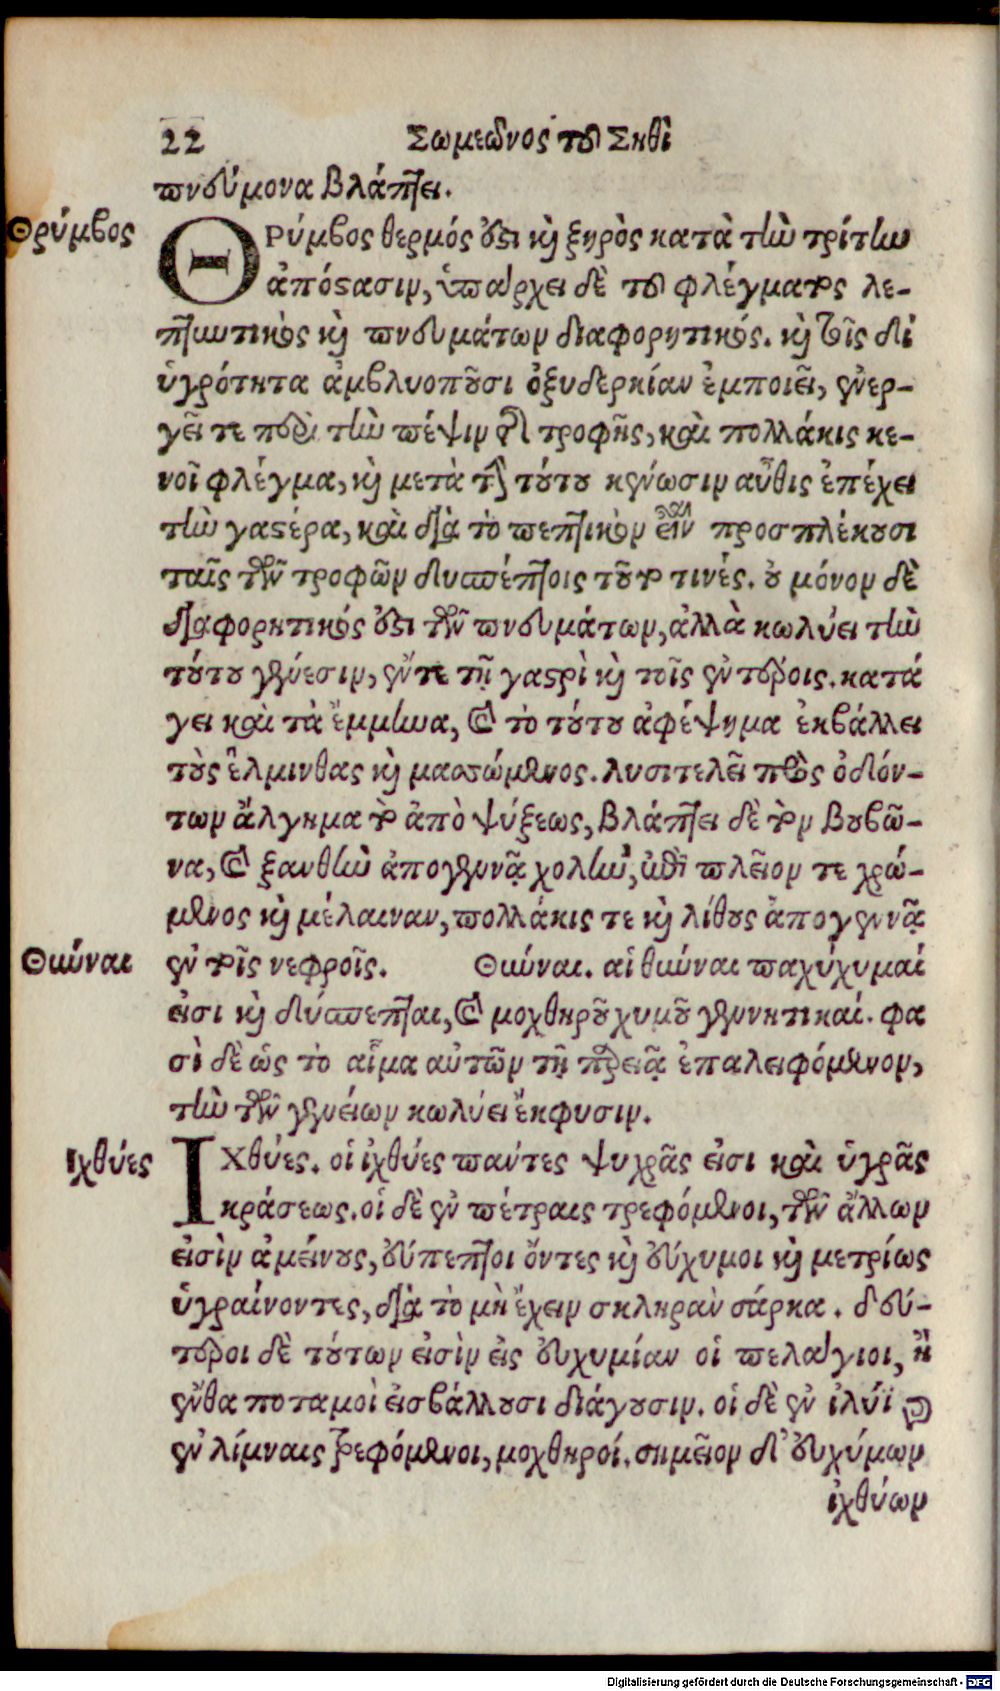 22 Σωμεῶνος τοῦ Σηθὶ
πνεύμονα βλάπτει.
Θρύμβος
ΘΡύμβος θερμός ἐστι καὶ ξηρὸς κατὰ τὴν τρίτην
ἀπόστασιν, ὑπάρχει δὲ τοῦ φλέγματος λε-
πτυντικὸς καὶ πνευμάτων διαφορητικός. καὶ τοῖς δι
ὑγρότητα ἀμβλυοποῦσι ὀξυδερκίαν ἐμποιεῖ, συνερ-
γεῖ τε περὶ τὴν πέψιν τῆς τροφῆς, καὶ πολλάκις κε-
νοῖ φλέγμα, καὶ μετὰ τὴν τούτου κένωσιν αὖθις ἐπέχει
τὴν γαστέρα, καὶ διὰ τὸ πεπτικὸν εἶναι προσπλέκουσι
ταῖς τῶν τροφῶν δυσπέπτοις τοῦτο τινές. οὐ μόνον δὲ
διαφορητικός ἐστι τῶν πνευμάτων, ἀλλὰ κωλύει τὴν
τούτου γένεσιν, ἔν τε τῇ γαστρὶ καὶ τοῖς ἐντέροις. κατά
γει καὶ τὰ ἔμμηνα, καὶ τὸ τούτου ἀφέψημα ἐκβάλλει
τοὺς ἕλμινθας καὶ μασσώμενος. λυσιτελεῖ πρὸς ὀδόν-
των ἄλγημα τὸ ἀπὸ ψύξεως, βλάπτει δὲ τὸν βουβῶ-
να, καὶ ξανθὴν ἀπογεννᾷ χολήν, ἐπὶ πλεῖον τε χρώ-
μενος καὶ μέλαιναν, πολλάκις τε καὶ λίθους ἀπογεννᾷ
Θύναι
ἐν τοῖς νεφροῖς. Θύναι. αἱ θύναι παχύχυμαί
εἰσι καὶ δύσπεπται, καὶ μοχθηροῦ χυμοῦ γεννητικαί. φα
σὶ δὲ ὡς τὸ αἷμα αὐτῶν τῇ παρειᾷ ἐπαλειφόμενον,
τὴν τῶν γενείων κωλύει ἔκφυσιν.
Ἰχθύες
ΙΧθύες. οἱ ἰχθύες πάντες ψυχρᾶς εἰσι καὶ ὑγρᾶς
κράσεως. οἱ δὲ ἐν πέτραις τρεφόμενοι, τῶν ἄλλων
εἰσὶν ἀμείνους, εὔπεπτοι ὄντες καὶ εὔχυμοι καὶ μετρίως
ὑγραίνοντες, διὰ τὸ μὴ ἔχειν σκληρὰν σάρκα. δεύ-
τεροι δὲ τούτων εἰσὶν εἰς εὐχυμίαν οἱ πελάγιοι, ἢ
ἔνθα ποταμοὶ εἰσβάλλουσι διάγουσιν. οἱ δὲ ἐν ἰλύϊ καὶ
ἐν λίμναις τρεφόμενοι, μοχθηροί. σημεῖον δ' εὐχύμων
ἰχθύων
Digitalisierung gefördert durch die Deutsche Forschungsgemeinschaft - DFG